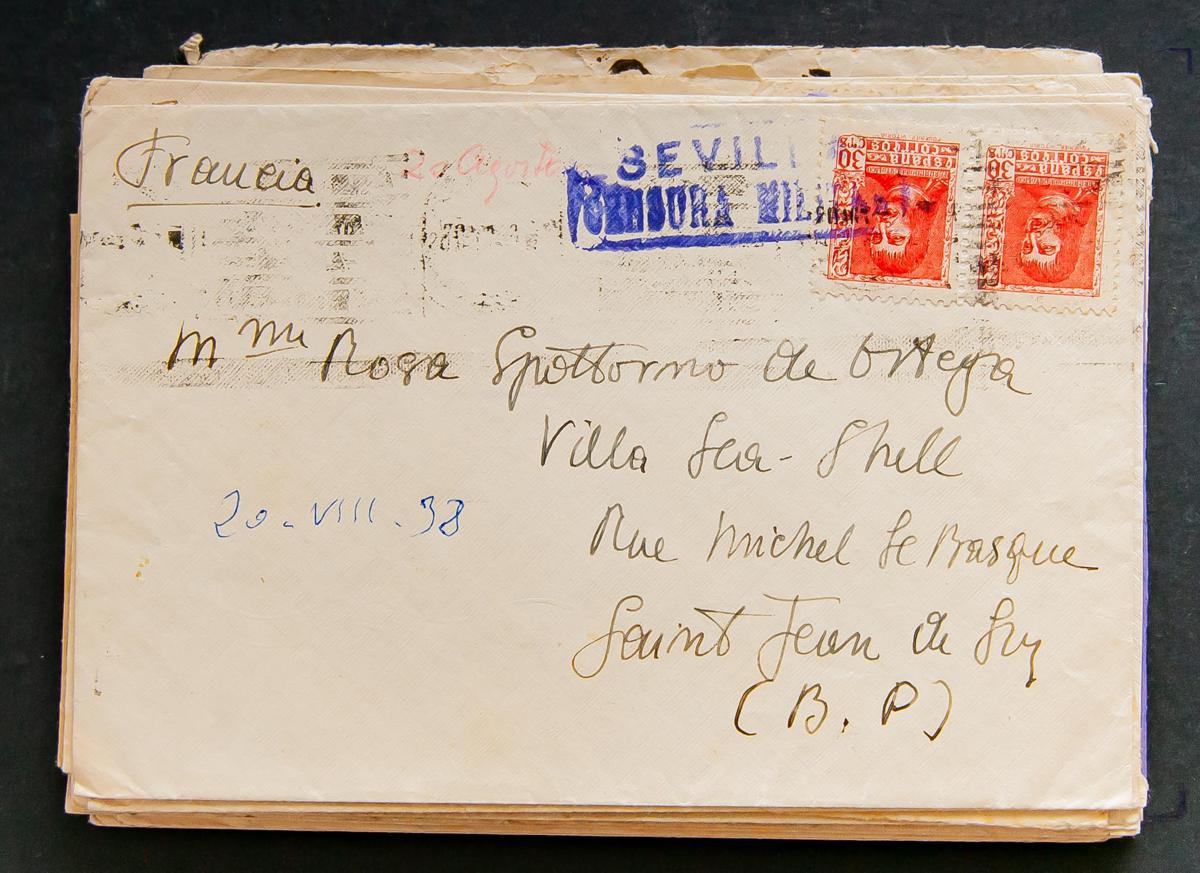 Francia
20 Agosto
SEVILL
CENSURA MILITAR
30 CTS
ESPAÑA
CORREOS
30 CTS
ESPAÑA
CORREOS
Mme Rosa Spottorno de Ortega
Villa Sea-Shell
20-VIII-38
Rue Michel Le Basque
Saint Jean de Luz
(B.P)